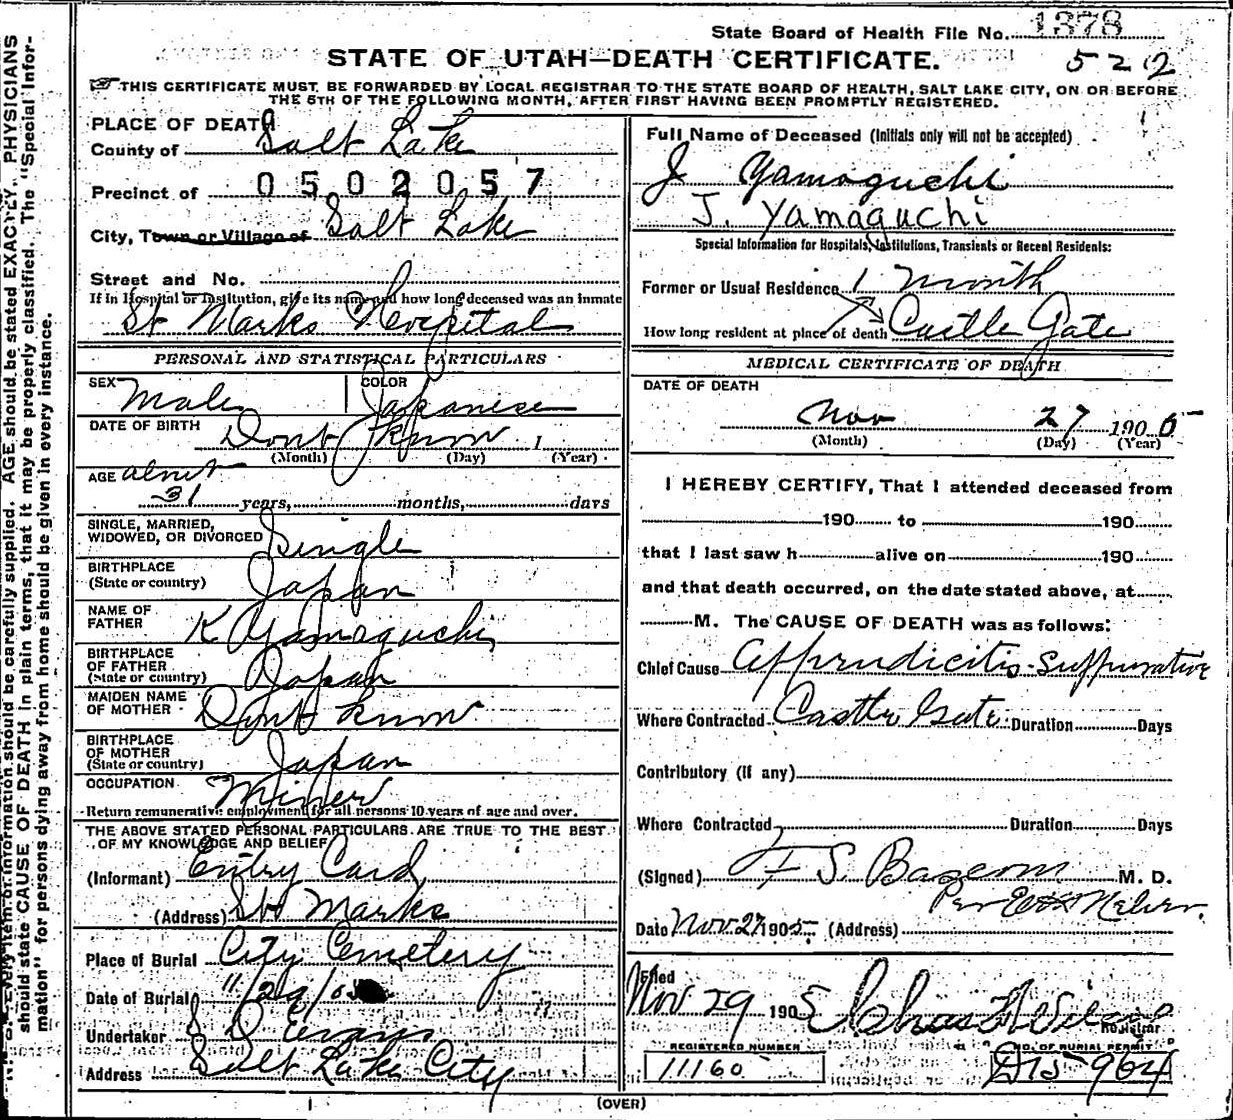 State Board of Health File No. 1378
STATE OF UTAH—DEATH CERTIFICATE. 522
THIS CERTIFICATE MUST BE FORWARDED BY LOCAL REGISTRAR TO THE STATE BOARD OF HEALTH, SALT LAKE CITY, ON OR BEFORE
THE 5TH OF THE FOLLOWING MONTH, AFTER FIRST HAVING BEEN PROMPTLY REGISTERED.
Every item of information should be carefully supplied. AGE should be stated EXACTLY. PHYSICIANS
should state CAUSE OF DEATH in plain terms, that it may be properly classified. The "Special Infor-
mation" for persons dying away from home should be given in every instance.
PLACE OF DEATH
County of Salt Lake
Precinct of 0502057
City, Town or Village of Salt Lake
Street and No.
If in Hospital or Institution, give its name and how long deceased was an inmate
St Marks Hospital
PERSONAL AND STATISTICAL PARTICULARS
SEX Male COLOR Japanese
DATE OF BIRTH Dont know 1
(Month) (Day) (Year)
AGE about
31 years, months, days
SINGLE, MARRIED,
WIDOWED, OR DIVORCED Single
BIRTHPLACE
(State or country) Japan
NAME OF
FATHER K Yamaguchi
BIRTHPLACE
OF FATHER
(State or country) Japan
MAIDEN NAME
OF MOTHER Dont know
BIRTHPLACE
OF MOTHER
(State or country) Japan
OCCUPATION Miner
Return remunerative employment for all persons 10 years of age and over.
THE ABOVE STATED PERSONAL PARTICULARS ARE TRUE TO THE BEST
OF MY KNOWLEDGE AND BELIEF
(Informant) Entry Card
(Address) St Marks
Place of Burial City Cemetery
Date of Burial 11/29/05
Undertaker S D Evans
Address Salt Lake City
Full Name of Deceased (Initials only will not be accepted)
J Yamoguchi
J. Yamaguchi
Special Information for Hospitals, Institutions, Transients or Recent Residents:
Former or Usual Residence 1 month
How long resident at place of death Castle Gate
MEDICAL CERTIFICATE OF DEATH
DATE OF DEATH
Nov 27 1905
(Month) (Day) (Year)
I HEREBY CERTIFY, That I attended deceased from
190 to 190
that I last saw h alive on 190
and that death occurred, on the date stated above, at
M. The CAUSE OF DEATH was as follows:
Chief Cause Appendicitis-Suppurative
Where Contracted Castle Gate Duration Days
Contributory (if any)
Where Contracted Duration Days
(Signed) F S Bascom M. D.
Per
Date Nov. 27 1905 (Address)
Filed
Nov 29 1905 Chas
Registrar
REGISTERED NUMBER
11160
NO. OF BURIAL PERMIT
964
(OVER)